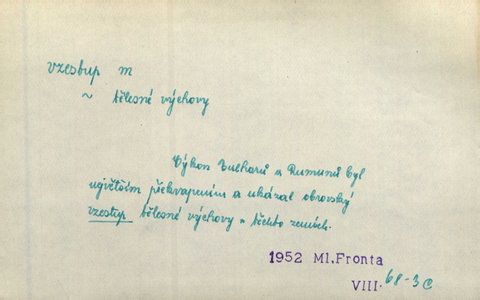 vzestup m
~ tělesné výchovy
Výkon Bulharů a Rumunů byl
největším překvapením a ukázal obrovský
vzestup tělesné výchovy v těchto zemích.
1952 Ml.Fronta
VIII. 68-3c